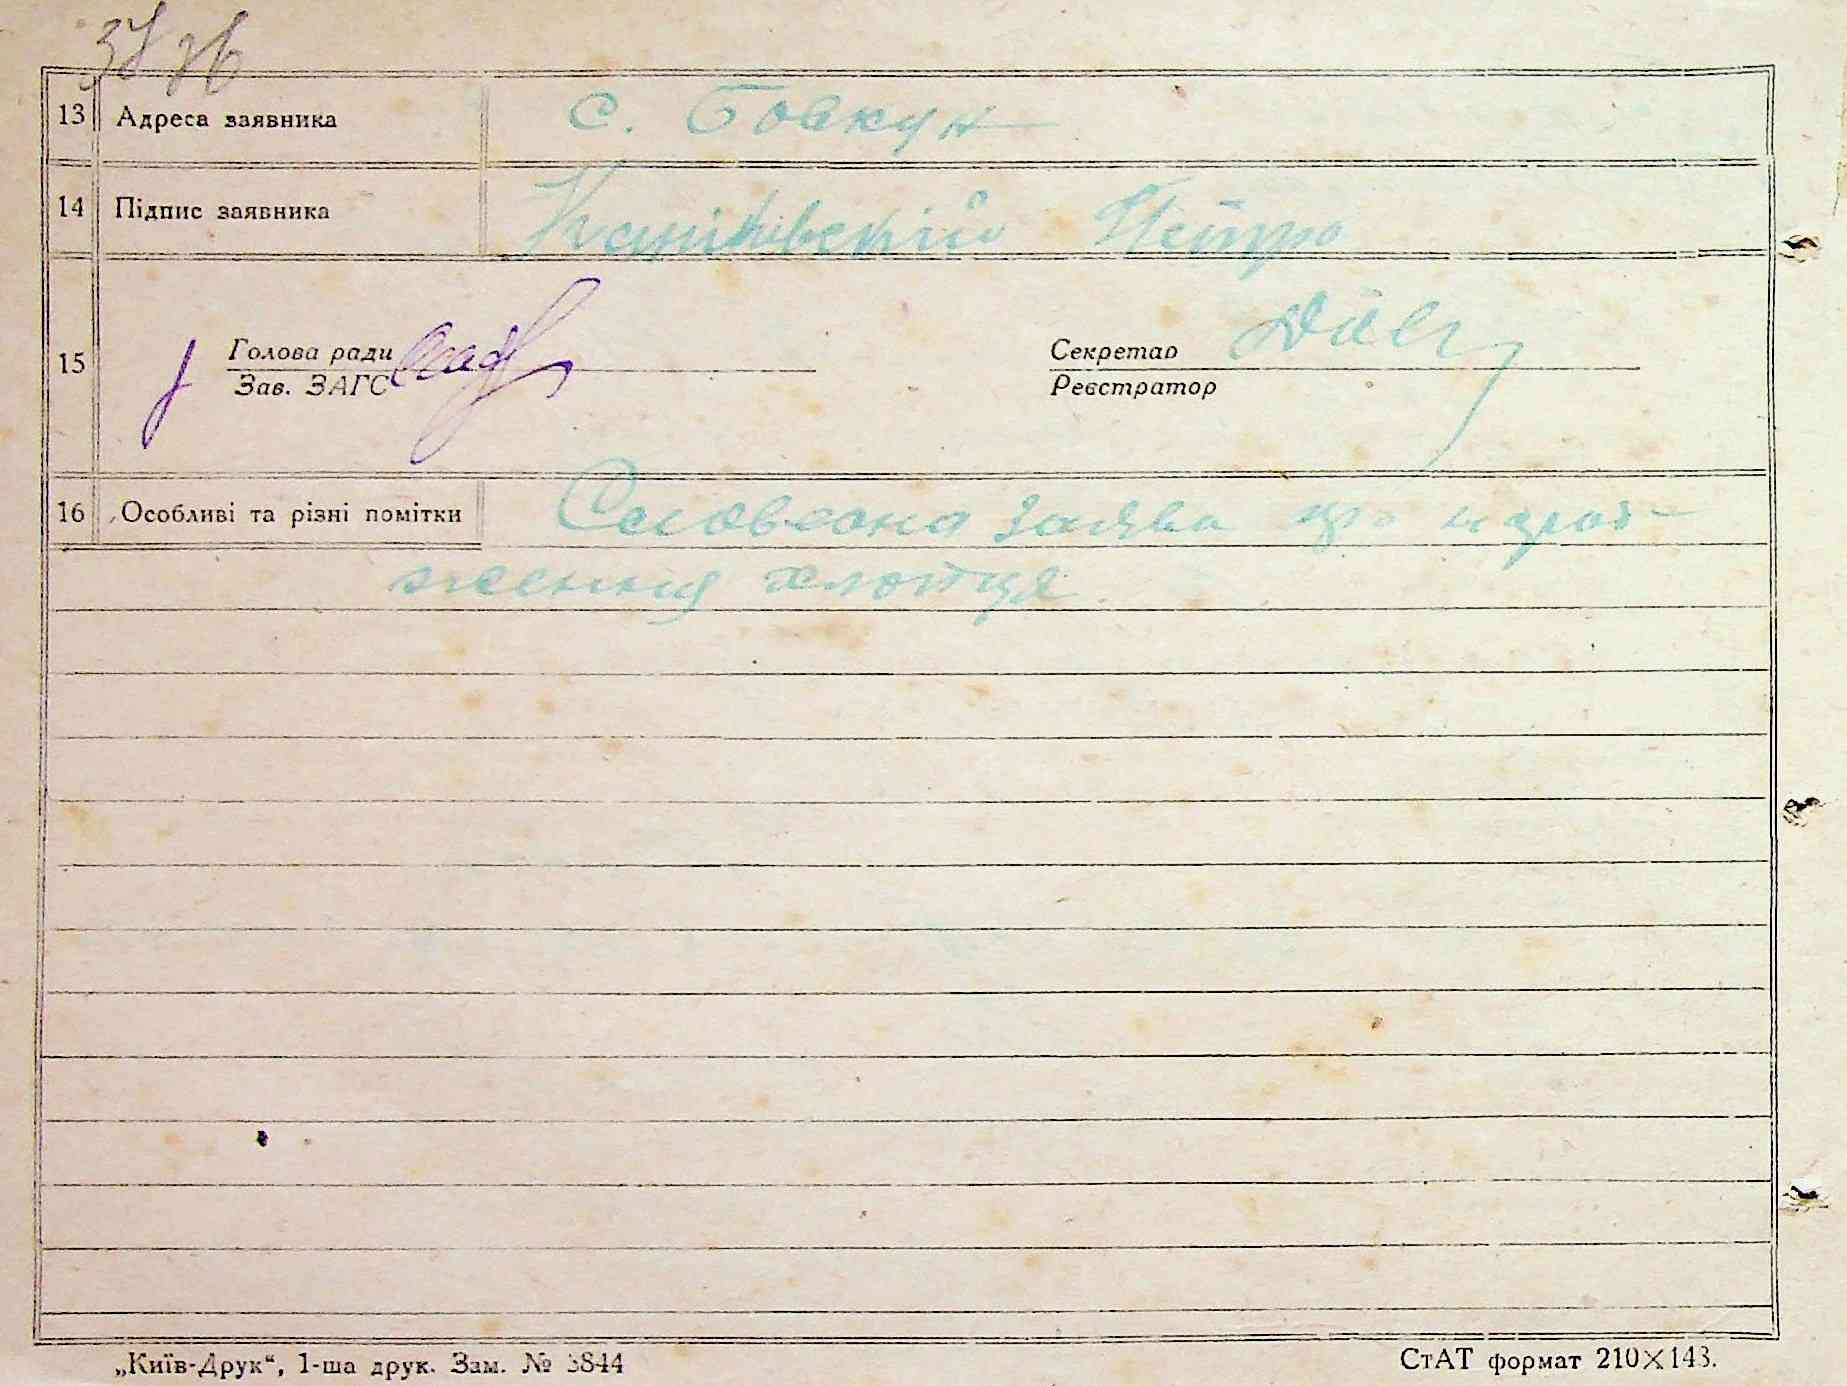 13 Адреса заявника с. Бовкун
14 Підпис заявника Петро
15 Голова ради Секретар
Зав. ЗАГС Реєстратор
16 Особливі та різні помітки Словесна заява про народ-
ження хлопця
„Київ-Друк“, 1-ша друк. Зам. № 3844 СтАТ формат 210×143.